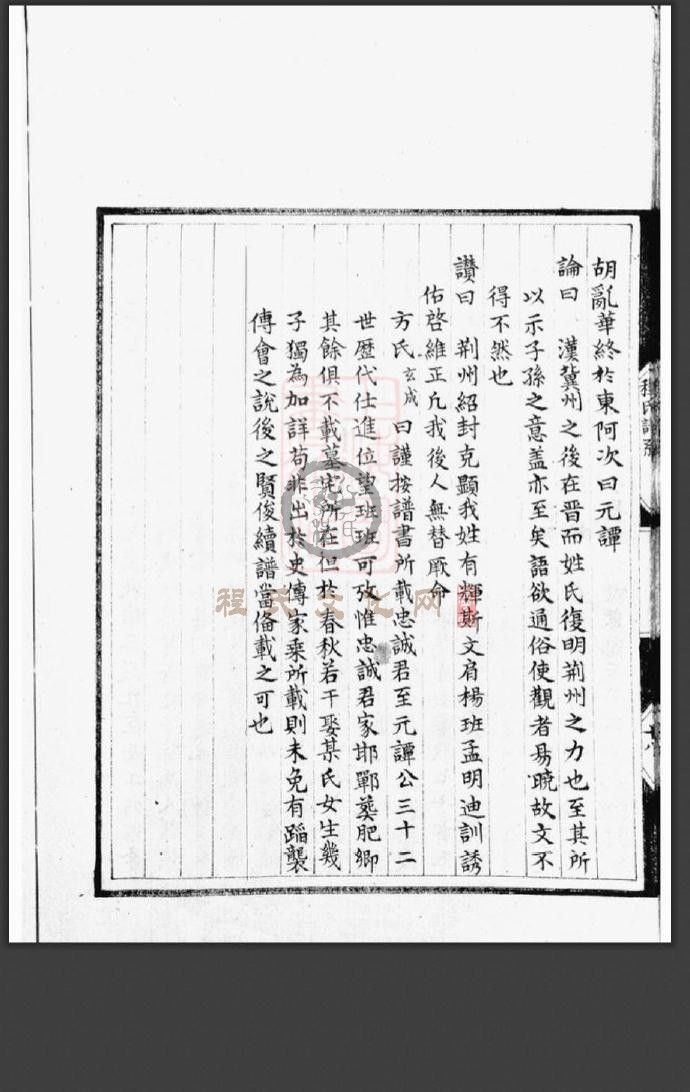 胡亂華終於東阿次曰元譚
論曰　漢冀州之後在晋而姓氏復明荆州之力也至其所
以示子孫之意盖亦至矣語欲通俗使觀者易曉故文不
得不然也
讚曰　荆州紹封克顯我姓有輝斯文肩楊班孟明迪訓誘
佑啓維正凢我後人無替厥命
方氏玄成曰謹按譜書所載忠誠君至元譚公三十二
世歷代仕進位望班班可攷惟忠誠君家邯鄲葬肥鄉
其餘俱不載墓宅所在但於春秋若干娶某氏女生幾
子獨為加詳苟非出於史傳家乘所載則未免有蹈襲
傅會之說後之賢俊續譜當俻載之可也
程氏譜
程氏文化网